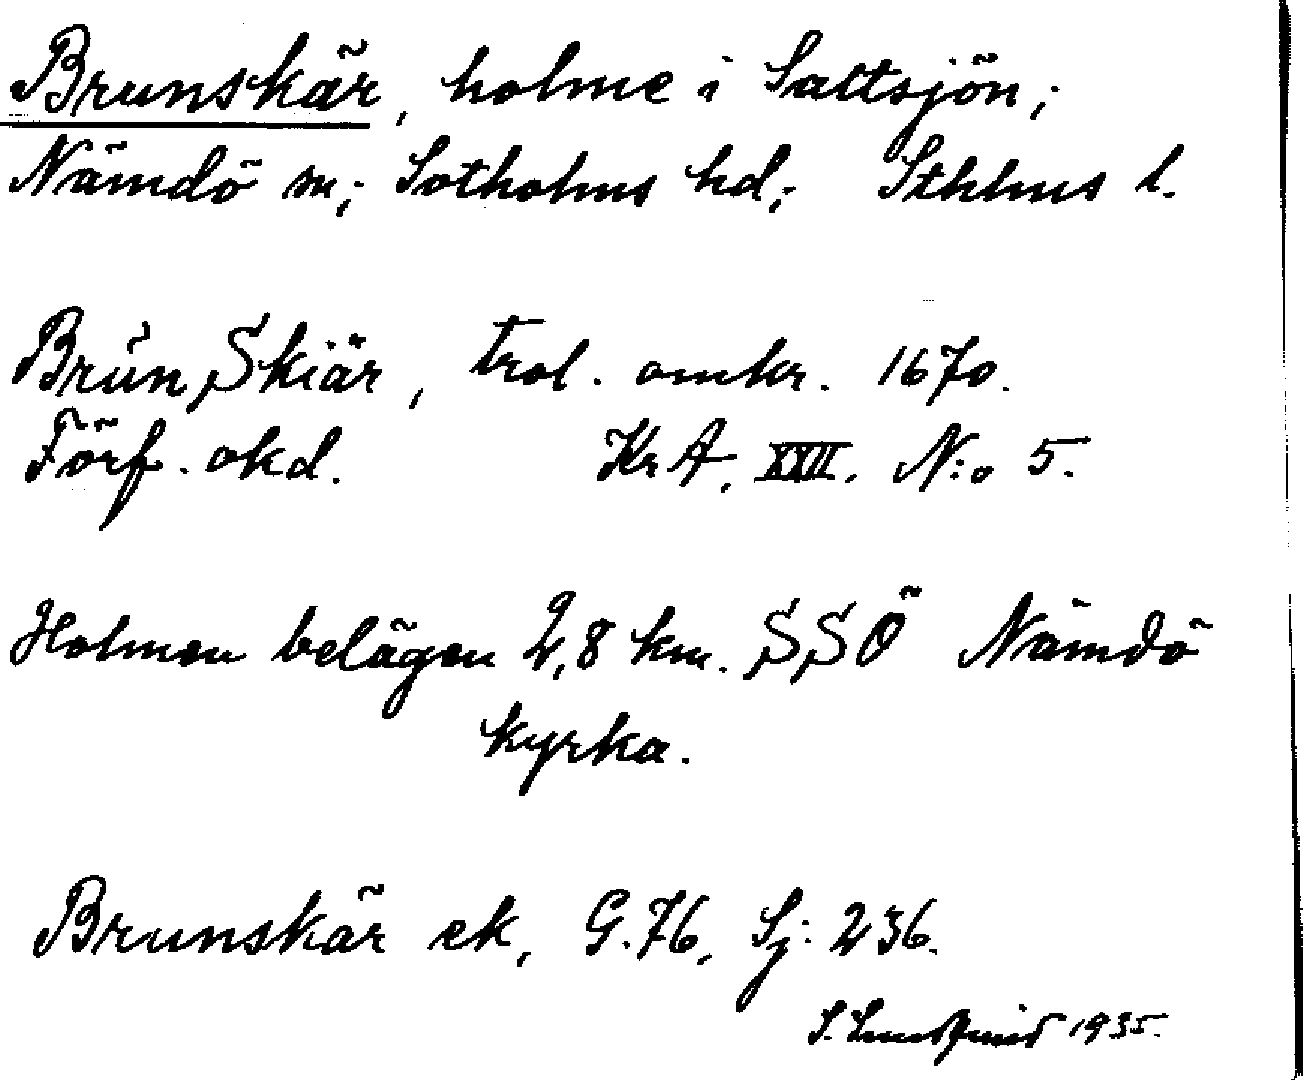 Brunskär, holme i Saltsjön;
Nämdö sn; Sotholms hd; Sthlms l.
Brün Skiär, trol. omkr. 1670.
Förf. okd. Kr A. XXII. N:o 5.
Holmen belägen 2,8 km. SSÖ Nämdö
kyrka.
Brunskär ek, G.76, Sj: 236.
S. Lundqvist 1935.